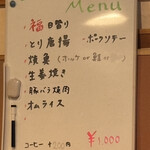 Menu
・福日替り
・とり唐揚 ・ポークソテー
・焼魚(ホッケか鮭
・生姜焼き
・豚バラ焼肉
・オムライス
コーヒー
¥1000